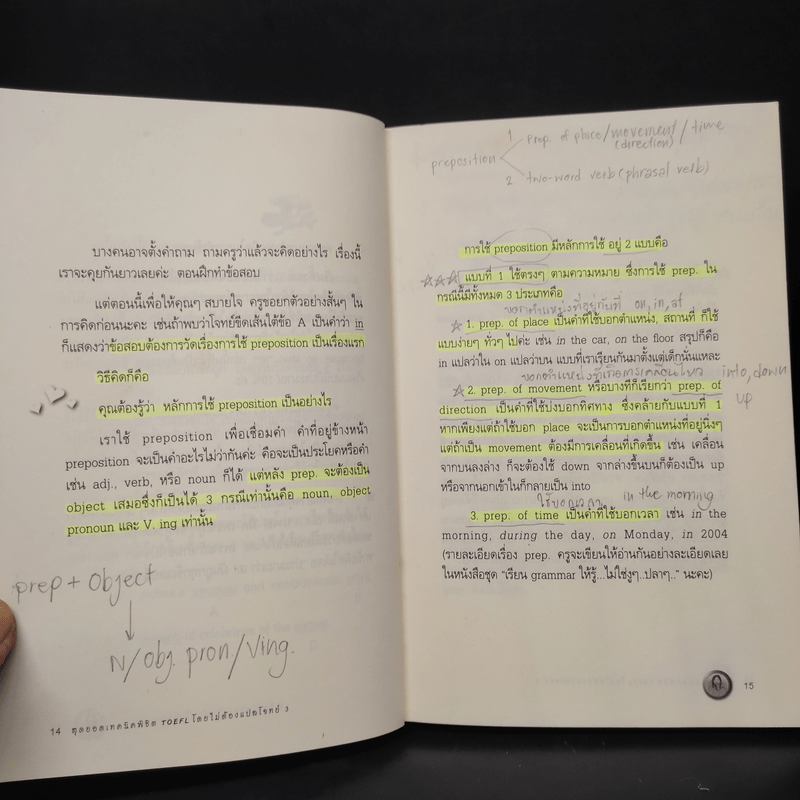 บางคนอาจตั้งคำถาม ถามครูว่าแล้วจะคิดอย่างไร เรื่องนี้
เราจะคุยกันยาวเลยค่ะ ตอนฝึกทำข้อสอบ
แต่ตอนนี้เพื่อให้คุณๆ สบายใจ ครูขอยกตัวอย่างสั้นๆ ใน
การคิดก่อนนะคะ เช่นถ้าพบว่าโจทย์ขีดเส้นใต้ข้อ A เป็นคำว่า in
ก็แสดงว่าข้อสอบต้องการวัดเรื่องการใช้ preposition เป็นเรื่องแรก
วิธีคิดก็คือ
คุณต้องรู้ว่า หลักการใช้ preposition เป็นอย่างไร
เราใช้ preposition เพื่อเชื่อมคำ คำที่อยู่ข้างหน้า
preposition จะเป็นคำอะไรไม่ว่ากันค่ะ คือจะเป็นประโยคหรือคำ
เช่น adj., verb, หรือ noun ก็ได้ แต่หลัง prep. จะต้องเป็น
object เสมอซึ่งก็เป็นได้ 3 กรณีเท่านั้นคือ noun, object
pronoun และ V. ing เท่านั้น
prep + Object
N/obj. pron/Ving.
14 สุดยอดเทคนิคพิชิต TOEFL โดยไม่ต้องแปลโจทย์ 3
1 prep. of place/movement/time
(direction)
preposition
2 two-word verb (phrasal verb)
การใช้ preposition มีหลักการใช้ อยู่ 2 แบบคือ
แบบที่ 1 ใช้ตรงๆ ตามความหมาย ซึ่งการใช้ prep. ใน
กรณีนี้มีทั้งหมด 3 ประเภทคือ
บอกตำแหน่งที่อยู่กับที่ on, in, at
1. prep. of place เป็นคำที่ใช้บอกตำแหน่ง, สถานที่ ก็ใช้
แบบง่ายๆ ทั่วๆ ไปค่ะ เช่น in the car, on the floor สรุปก็คือ
in แปลว่าใน on แปลว่าบน แบบที่เราเรียนกันมาตั้งแต่เด็กนั่นแหละ
บอกตำแหน่งที่มีการเคลื่อนไหว into, down
2. prep. of movement หรือบางทีก็เรียกว่า prep. of
up
direction เป็นคำที่ใช้บ่งบอกทิศทาง ซึ่งคล้ายกับแบบที่ 1
หากเพียงแต่ถ้าใช้บอก place จะเป็นการบอกตำแหน่งที่อยู่นิ่งๆ
แต่ถ้าเป็น movement ต้องมีการเคลื่อนที่เกิดขึ้น เช่น เคลื่อน
จากบนลงล่าง ก็จะต้องใช้ down จากล่างขึ้นบนก็ต้องเป็น up
หรือจากนอกเข้าในก็กลายเป็น into
ใช้บอกเวลา in the morning
3. prep. of time เป็นคำที่ใช้บอกเวลา เช่น in the
morning, during the day, on Monday, in 2004
(รายละเอียดเรื่อง prep. ครูจะเขียนให้อ่านกันอย่างละเอียดเลย
ในหนังสือชุด "เรียน grammar ให้รู้...ไม่ใช่งูๆ..ปลาๆ.." นะคะ)
15